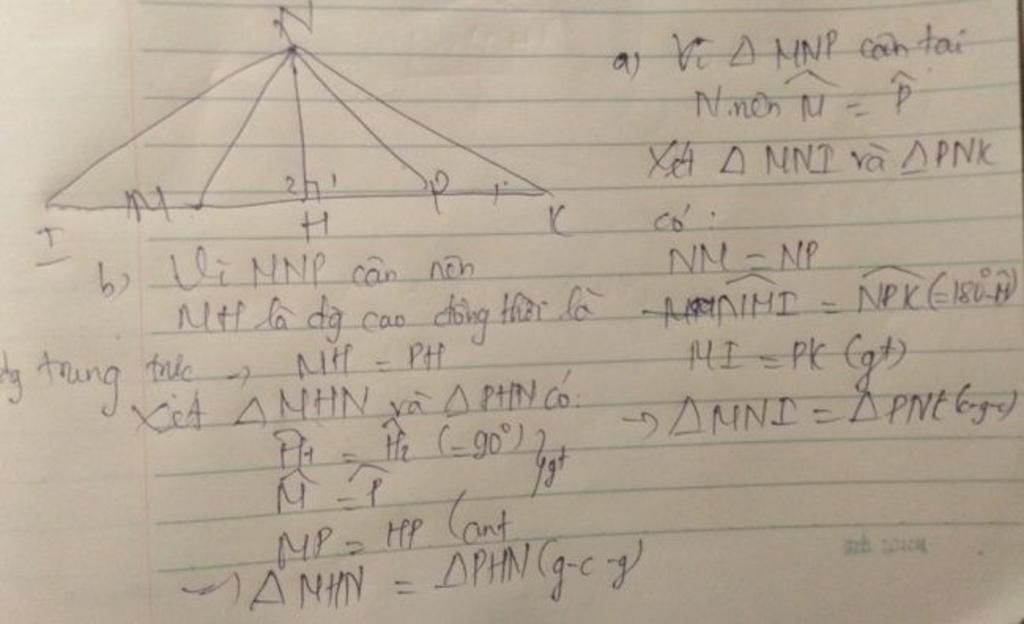 N
I
M
2
1
H
P
K
a) Vì Δ MNP cân tại
N nên M̂ = P̂
Xét Δ MNI và ΔPNK
có:
NM = NP
NMI = NPK (=180°-M̂)
MI = PK (gt)
→ ΔMNI = ΔPNK (c-g-c)
b) Vì MNP cân nên
MH là đg cao đồng thời là
đg trung trực → MH = PH
Xét ΔMHN và ΔPHN có:
Ĥ1 = Ĥ2 (=90°) } gt
M̂ = P̂
MP = HP (cmt
→ Δ MHN = ΔPHN (g-c-g)